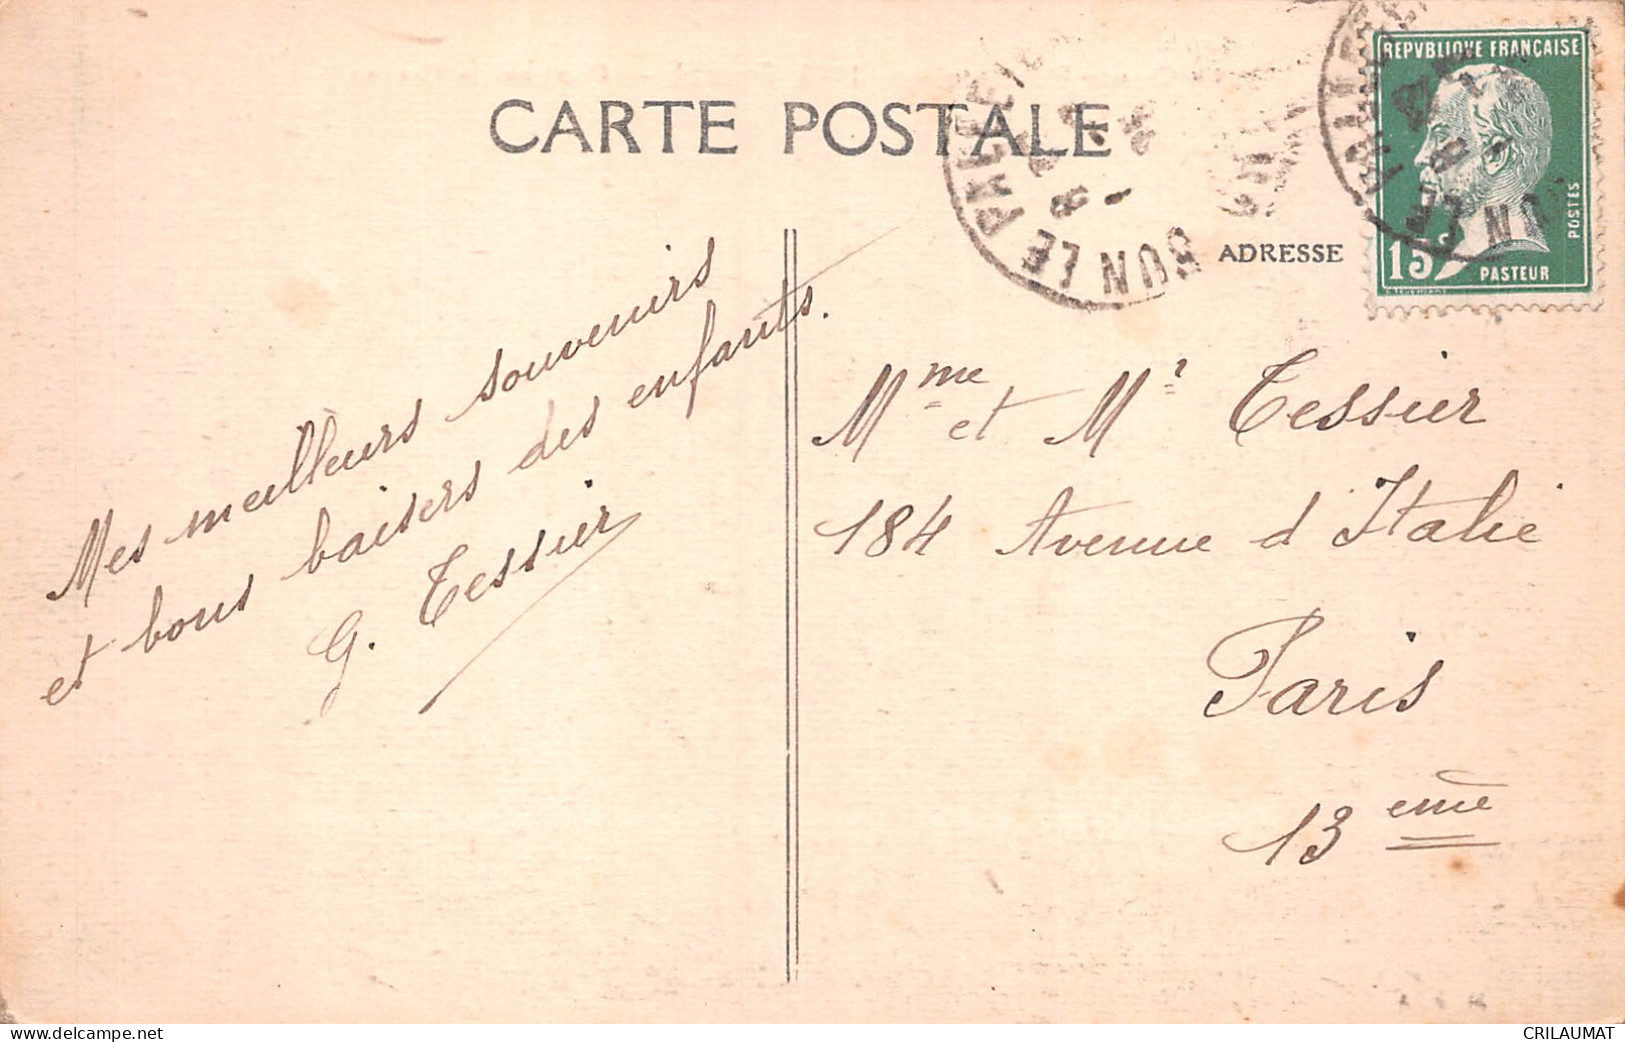 CARTE POSTALE
REPVBLIQVE FRANÇAISE
POSTES
15c
PASTEUR
ADRESSE
Mes meilleurs souvenirs
et bons baisers des enfants.
G. Tessier
Mme et Mr Tessier
184 Avenue d'Italie
Paris
13 eme
CRILAUMAT